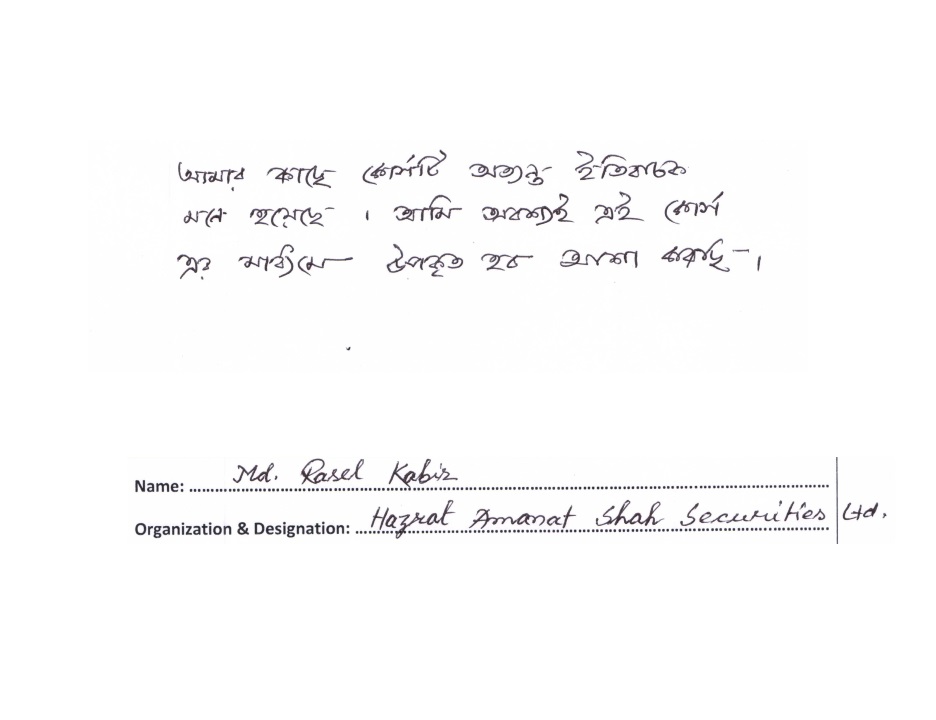 আমার কাছে কোর্সটি অত্যন্ত ইতিবাচক
মনে হয়েছে । আমি অবশ্যই এই কোর্স
এর মাধ্যমে উপকৃত হব আশা করছি ।
Name: Md. Rasel Kabir
Organization & Designation: Hazrat Amanat Shah Securities Ltd.